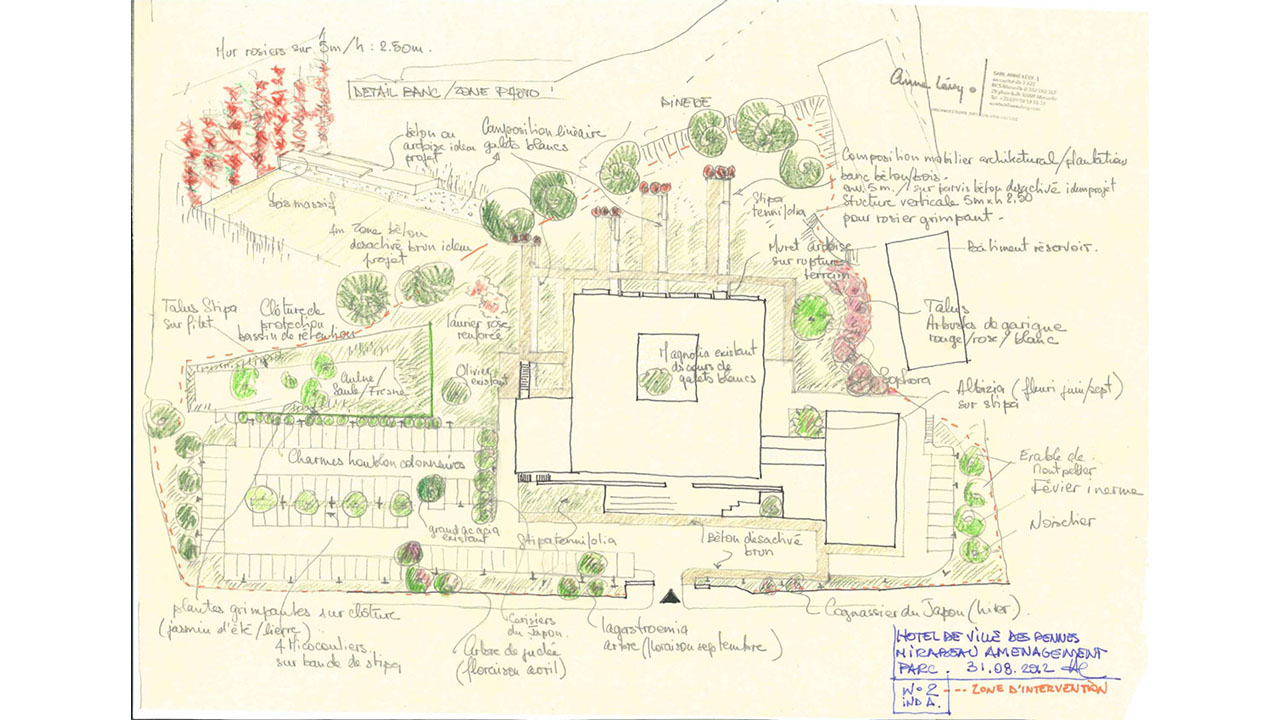 Mur rosiers sur 5m/h : 2.50m.
DETAIL BANC/ZONE PHOTO
Anne Lévy.
SARL ANNE LEVY
PINEDE
béton ou
ardoise idem
projet
Composition linéaire
galets blancs
Composition mobilier architectural/plantation
banc béton/bois.
env. 5 m. / sur parvis béton désactivé idem projet
Structure verticale 5m x h 2.50
pour rosier grimpant -
bois massif
4m zone béton
désactivé brun idem
projet
Stipa
tennifolia
Muret ardoise
sur rupture
terrain
Bâtiment réservoir.
Talus Stipa
sur filet
Clôture de
protection
bassin de rétention
laurier rose
renforcée
Talus
Arbustes de garigue
rouge/rose/blanc
Magnolia existant
ds cours de
galets blancs
Olivier
existant
Aulne/
Saule/Fresne
Sophora
Albizia (fleuri juin/sept)
sur stipa
Charmes houblon colonnaires
Erable de
Montpellier
Févier inerme
Noisetier
grand acacia
existant
Stipa tennifolia
Béton désactivé
brun
plantes grimpantes sur clôture
(jasmin d'été/lierre)
4 Micocouliers
sur bande de stipa
Cerisiers
du Japon.
Arbre de judée
(floraison avril)
lagerstroemia
arbre (floraison septembre)
Cognassier du Japon (hiver).
HOTEL DE VILLE DES PENNES
MIRABEAU AMENAGEMENT
PARC. 31.08.2012
N° 2
IND A.
--- ZONE D'INTERVENTION